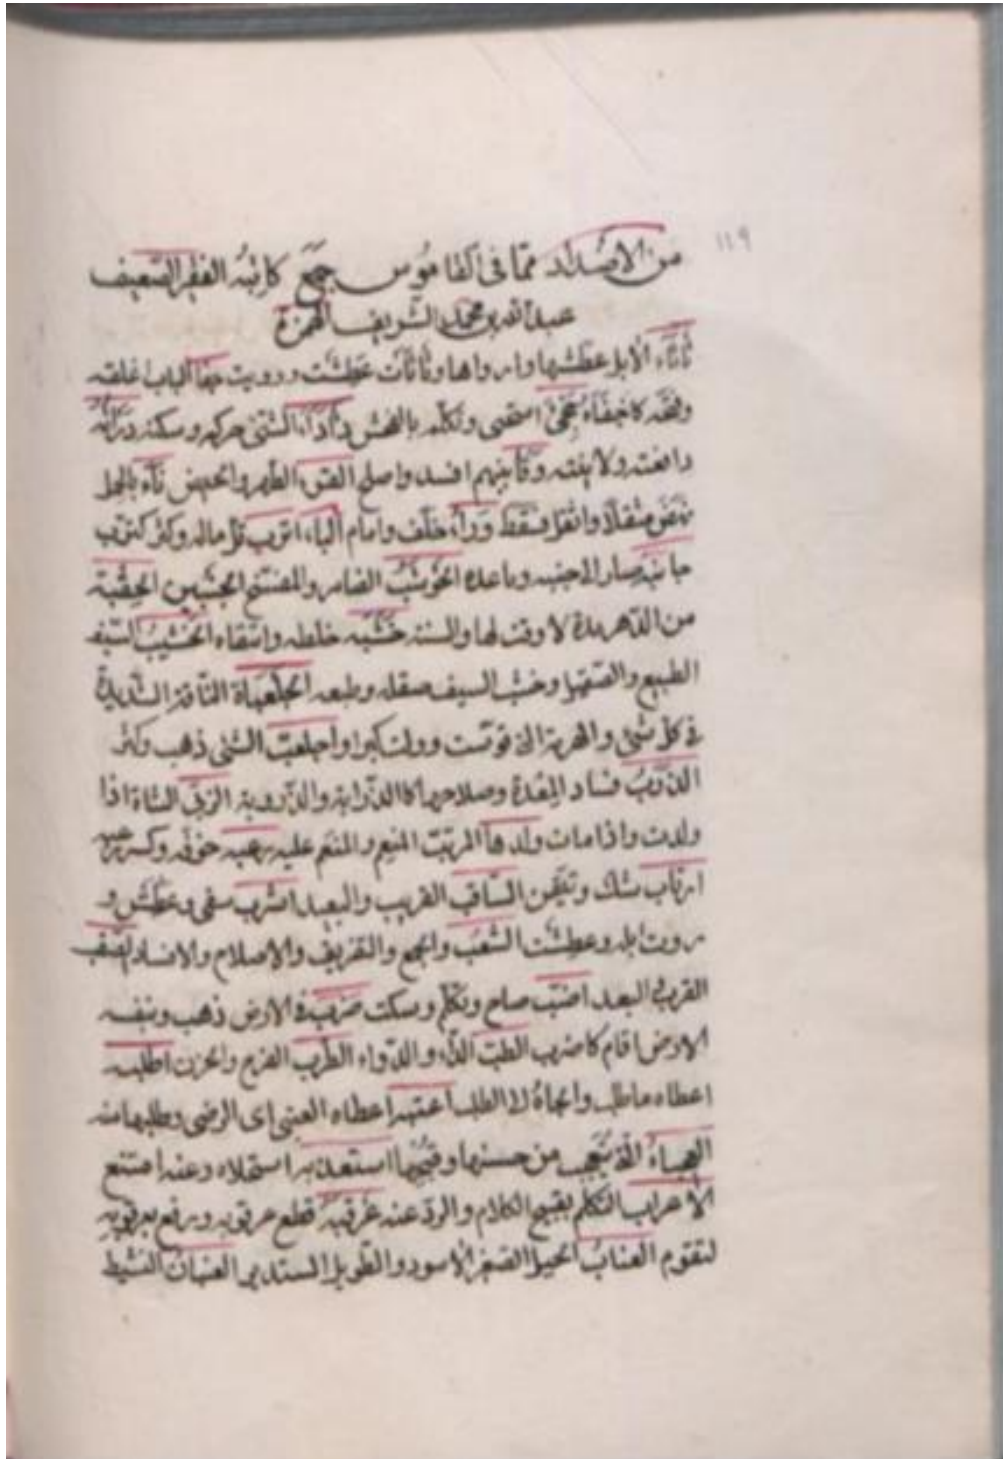 ١١٩
من الاضداد مما في القاموس جمع كاتبه الفقير الضعيف
عبد الله بن محمد الشريف
ثأثاء الابل عطشها وارواها وثأثأت عطشت ورويت جفأ الباب اغلقه
وفتحه كاجفاه استحيى وتكلم بالفحش دأدأ الشئ حركه وسكنه درأته
دافعته ولاينته بينهم افسد واصلح القرء الطهر والحيض ناء بالحمل
نهض مثقلا واثقل فسقط وراء خلف وامام الباء اترب قل ماله وكثر كترب
جانبه صار الى جنبه وباعده الحوشب الضامر والمنتفخ الجنبين الحقبة
من الدهر مدة لا وقت لها والسنة خشبه خلطه وانتقاه الخشيب السيف
الطبيع والصقيل وخشب السيف صقله وطبعه الجلعباة الناقة الشديدة
في كل شئ والهرمة التي قوست وولت كبرا واجلعب الشئ ذهب وكثر
الذرب فساد المعدة وصلاحها كالذرابة والذروبة الربى الشاة اذا
ولدت واذا مات ولدها المربب المنعم والمنعم عليه رهبه خوفه
ارتاب شك وتيقن الساقب القريب والبعيد اشرب سقى وعطش و
رويت ابله وعطشت الشعب والجمع والتفريق والاصلاح والافساد الصقب
القرب البعد اضب صاح وتكلم وسكت ضرب في الارض ذهب وبنفسه
الارض اقام كاضرب الطب الداء والدواء الطرب الفرح والحزن اطلبه
اعطاه ما طلب والجاه الى الطلب اعتبه اعطاه العتبى اى الرضى وطلبها منه
العجباء التي يتعجب من حسنها وقبحها استعذبه استحلاه وعنه امتنع
الاعراب التكلم بقبيح الكلام والرد عنه عرقبه قطع عرقوبه ورفع بعرقوبه
لتقوم العناب الجبل الصغير الاسود والطويل المستدير العنبان النشيط